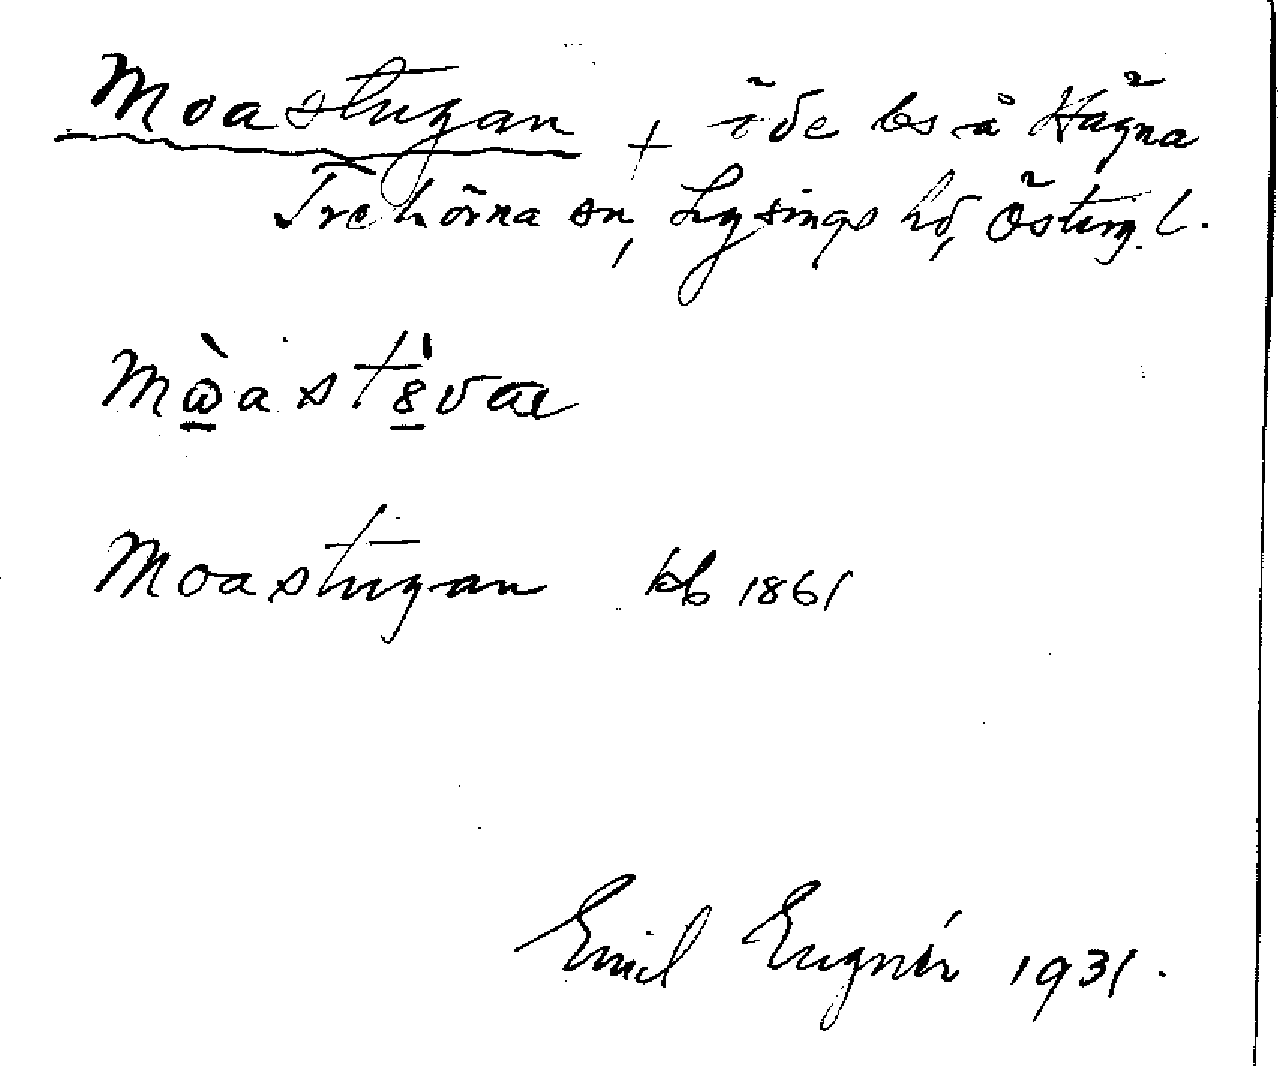 Moastugan + öde bs å Hägna
Trehörna sn, Lysings hd, Österg. l.
Moastugan kb 1861
Emil Eugnér 1931.